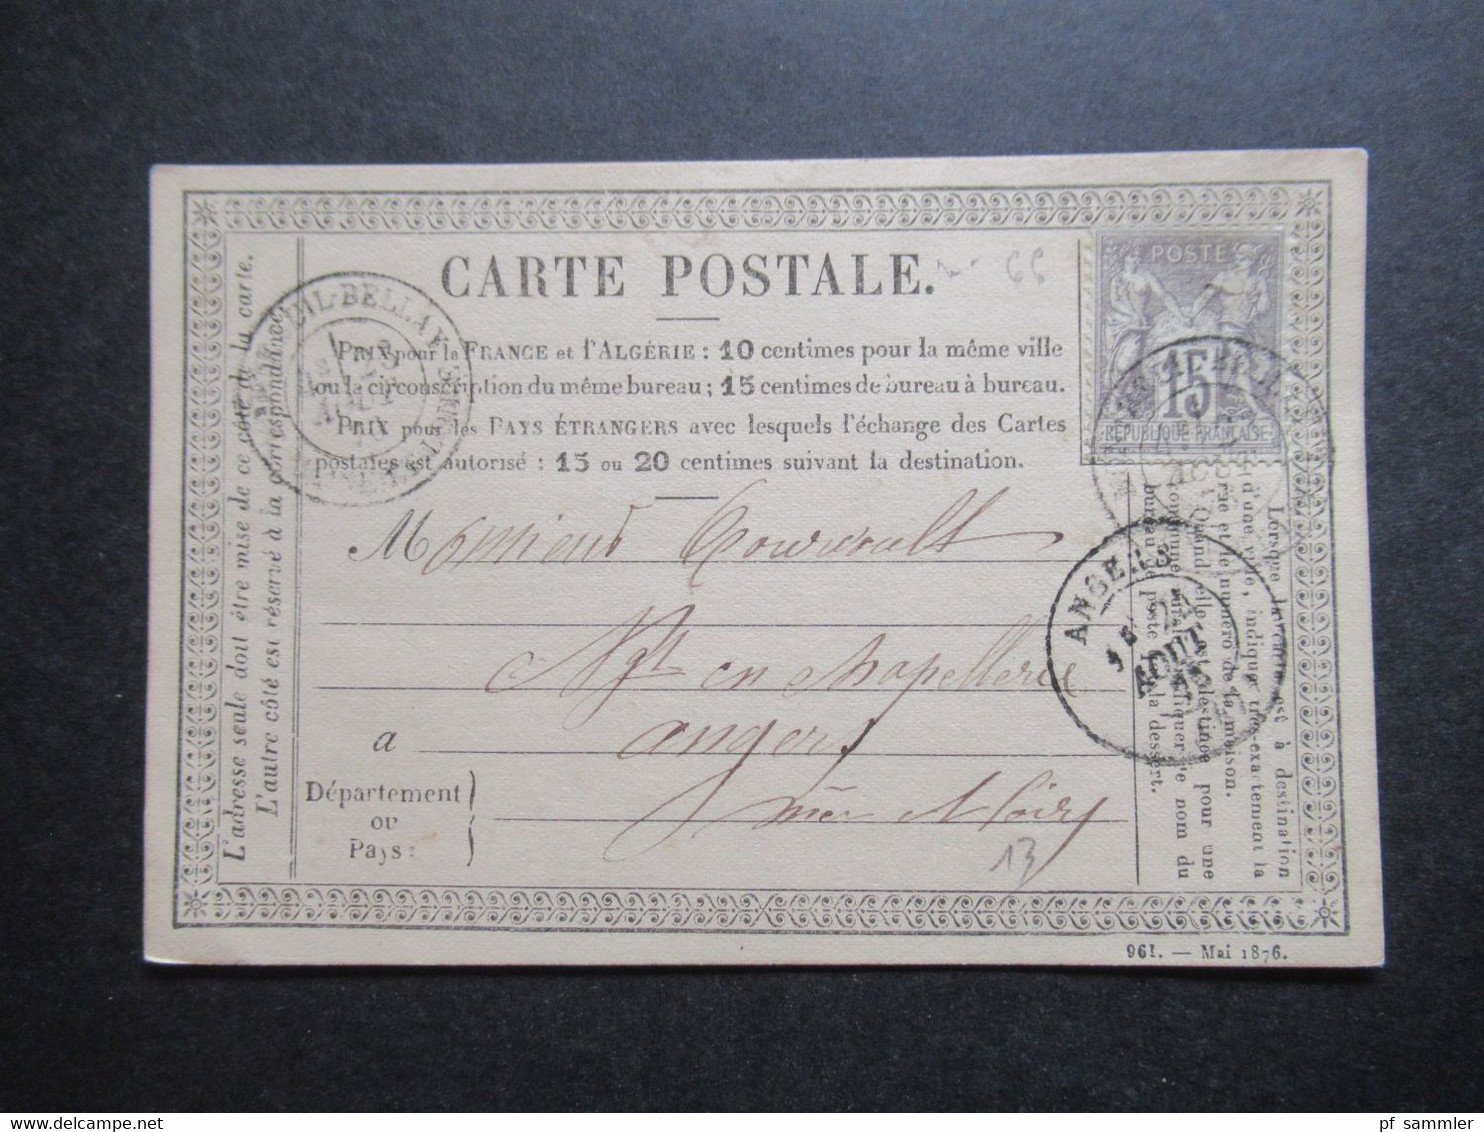 CARTE POSTALE.
66
PRIX pour la FRANCE et l'ALGÉRIE : 10 centimes pour la même ville
ou la circonscription du même bureau ; 15 centimes de bureau à bureau.
PRIX pour les PAYS ÉTRANGERS avec lesquels l'échange des Cartes
postales est autorisé : 15 ou 20 centimes suivant la destination.
POSTE
15
RÉPUBLIQUE FRANÇAISE
AOUT
UIL-BELLAY
ANGERS
AOUT
Monsieur
Ngt en chapellerie
a angers
Département
ou
Pays :
13
L'adresse seule doit être mise de ce côté de la carte.
L'autre côté est réservé à la correspondance.
Lorsque la carte est à destination
d'une ville, indiquer très-exactement la
rue et le numéro de la maison.
Quand elle est destinée pour une
commune rurale, indiquer le nom du
bureau de poste qui la dessert.
961. — Mai 1876.
pf_sammler